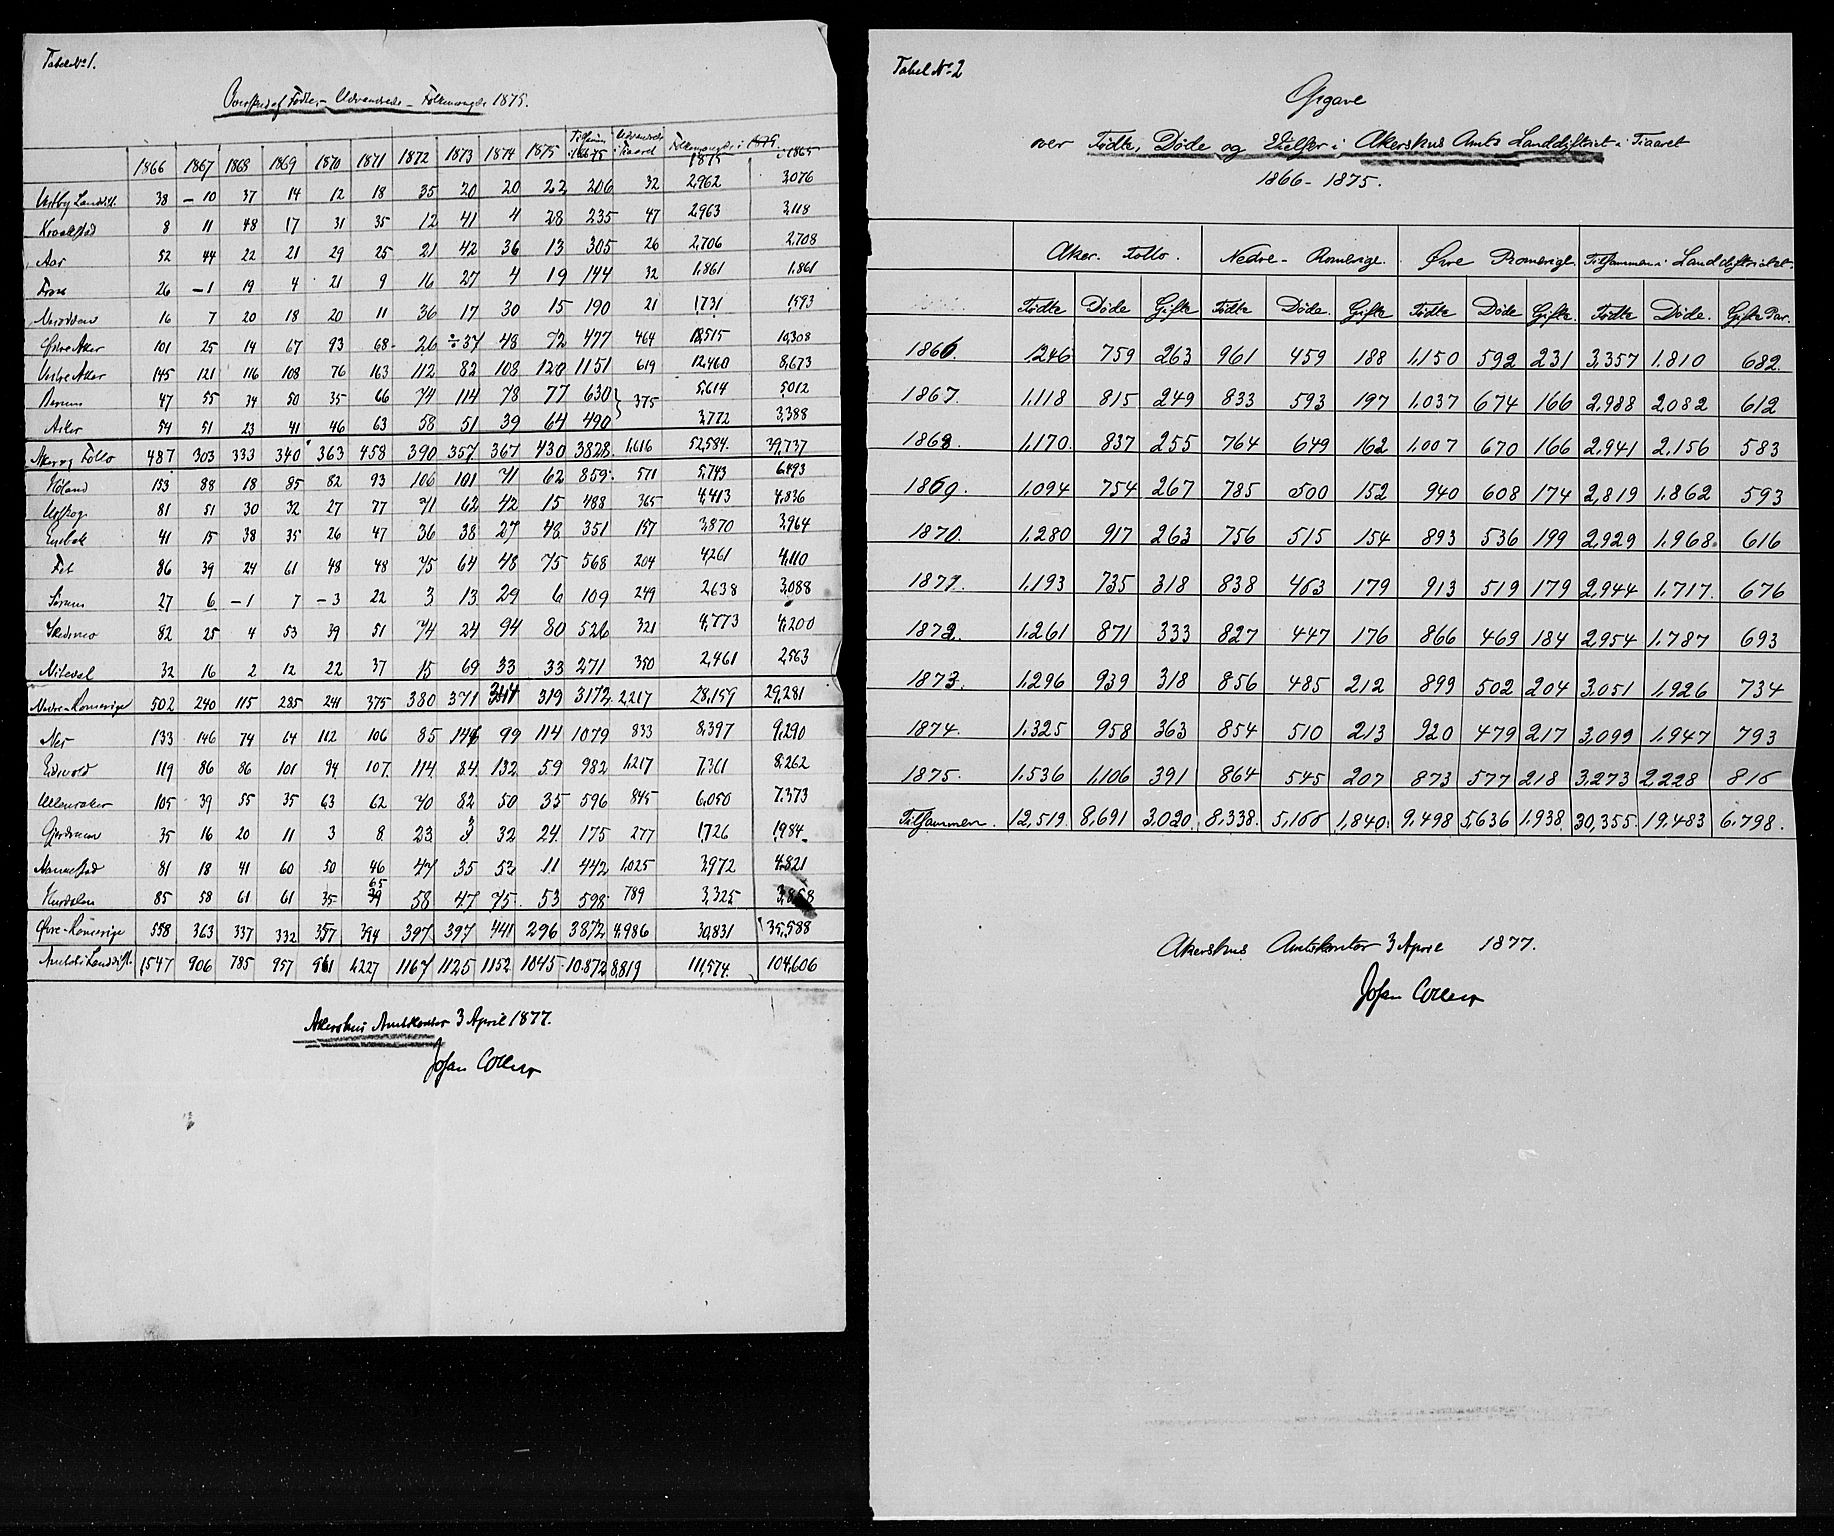 Tabel No 1.
Overskud af Fødte, - Udvandrede - Folkemængde 1875.
1866 1867 1868 1869 1870 1871 1872 1873 1874 1875 Tilsam 1866/75 Udvandrede i Tiaaret Folkemængde i 1875 i 1865
Vestby Landd. 38 - 10 37 14 12 18 35 20 20 22 206 32 2,962 3,076
Kraakstad 8 11 48 17 31 35 12 41 4 28 235 47 2,963 3,118
Aas 52 44 22 21 29 25 21 42 36 13 305 26 2,706 2,708
Fron 26 -1 19 4 21 9 16 27 4 19 144 32 1,861 1,861
Nesodden 16 7 20 18 20 11 36 17 30 15 190 21 1,731 1,593
Østre Aker 101 25 14 67 93 68 26 ÷37 48 72 477 464 18,515 10,308
Vestre Aker 145 121 116 108 76 163 112 82 108 120 1151 619 12,460 8,673
Berum 47 55 34 50 35 66 74 114 78 77 630 } 375 5,614 5,012
Asker 54 51 23 41 46 63 58 51 39 64 490 3,772 3,388
Aker og Follo 487 303 333 340 363 458 390 357 367 430 3828 1,616 52,584. 39,737
Høland 133 88 18 85 82 93 106 101 71 62 859 571 5,743 6,493
Urskog 81 51 30 32 27 77 71 62 42 15 488 365 4,413 4,836
Enebak 41 15 38 35 26 47 36 38 27 48 351 157 3,870 3,964
Fet 86 39 24 61 48 48 75 64 48 75 568 204 4,261 4,110
Sørum 27 6 -1 7 -3 22 3 13 29 6 109 249 2638 3,088
Skedsmo 82 25 4 53 39 51 74 24 94 80 526 321 4,773 4,200
Nitedal 32 16 2 12 22 37 15 69 33 33 271 350 2,461 2,563
Nedre-Romerige 502 240 115 285 241 375 380 371 344 319 3172 2,217 28,159 29,281
Nes 133 146 74 64 112 106 85 146 99 114 1079 833 8,397 9,290
Eidsvold 119 86 86 101 94 107 114 84 132 59 982 1,217 7,361 8,262
Ullensaker 105 39 55 35 63 62 70 82 50 35 596 845 6,050 7,373
Gjerdrum 35 16 20 11 3 8 23 3 32 24 175 277 1,726 1,984
Nannestad 81 18 41 60 50 46 47 35 53 11 442 1,025 3,972 4,821
Hurdalen 85 58 61 61 35 65 58 47 75 53 598 789 3,325 3,858
Øvre-Romerige 558 363 337 332 357 394 397 397 441 296 3872 4,986 30,831 35,588
Amtets Landd. 1,547 906 785 957 961 1,227 1167 1125 1152 1045 10.872 8,819 111,574 104,606
Akershus Amtskontor 3 April 1877.
Johan Collett
Tabel No 2
Opgave
over Fødte, Døde og Vielser i Akershus Amts Landdistrict i Tiaaret
1866 - 1875.
Aker. Follo. Nedre - Romerige. Øvre Romerige. Tilsammen i Landdistriktet.
Fødte Døde Gifte Fødte Døde. Gifte Fødte Døde Gifte. Fødte Døde. Gifte Par.
1866. 1246 759 263 961 459 188 1,150 592 231 3,357 1,810 682.
1867. 1,118 815 249 833 593 197 1,037 674 166 2,988 2,082 612
1868. 1,170 837 255 764 649 162 1,007 670 166 2,941 2,156 583
1869. 1,094 754 267 785 500 152 940 608 174 2,819 1,862 593
1870. 1,280 917 263 756 515 154 893 536 199 2,929 1,968 616
1871. 1,193 735 318 838 463 179 913 519 179 2,944 1,717. 676
1872. 1,261 871 333 827 447 176 866 469 184 2,954 1,787 693
1873. 1,296 939 318 856 485 212 899 502 204 3,051 1,926 734
1874. 1,325 958 363 854 510 213 920 479 217 3,099 1,947 793
1875. 1,536 1,106 391 864 545 207 873 577 218 3,273 2,228 816
Tilsammen. 12,519. 8,691 3,020. 8,338. 5,166 1,840. 9,498 5,636 1,938. 30,355. 19,483 6,798.
Akershus Amtskontor 3 April 1877.
Johan Collett